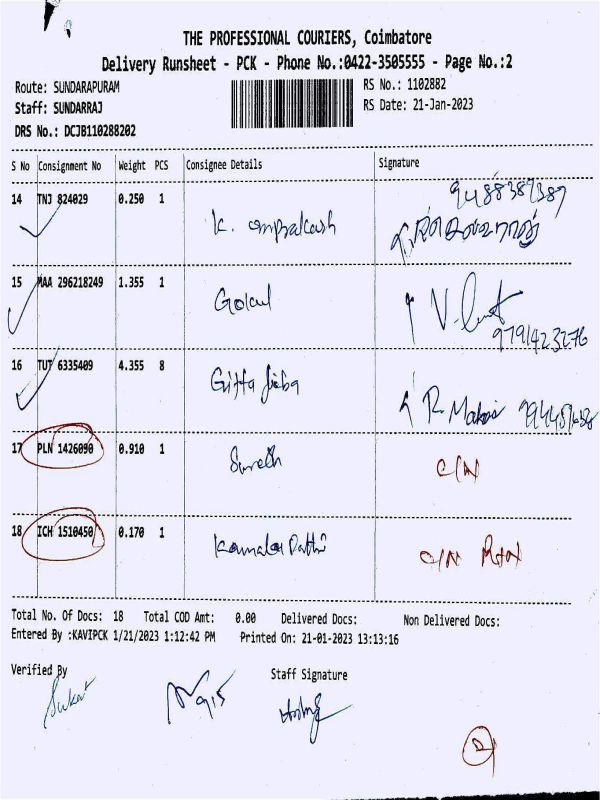 THE PROFESSIONAL COURIERS, Coimbatore
Delivery Runsheet - PCK - Phone No.:0422-3505555 - Page No.:2
Route: SUNDARAPURAM
RS No.: 1102882
Staff: SUNDARRAJ
RS Date: 21-Jan-2023
DRS No.: DCJB110288202
S No Consignment No Weight PCS Consignee Details Signature
14 TNJ 824029 0.250 1
9488387387
K. omprakash
15 MAA 296218249 1.355 1
Gokul
9791423276
16 TUT 6335409 4.355 8
Gifta Jieba
17 PLN 1426090 0.910 1
Suresh C/N
18 ICH 1510450 0.170 1
C/N
Total No. Of Docs: 18 Total COD Amt: 0.00 Delivered Docs: Non Delivered Docs:
Entered By :KAVIPCK 1/21/2023 1:12:42 PM Printed On: 21-01-2023 13:13:16
Verified By
Staff Signature